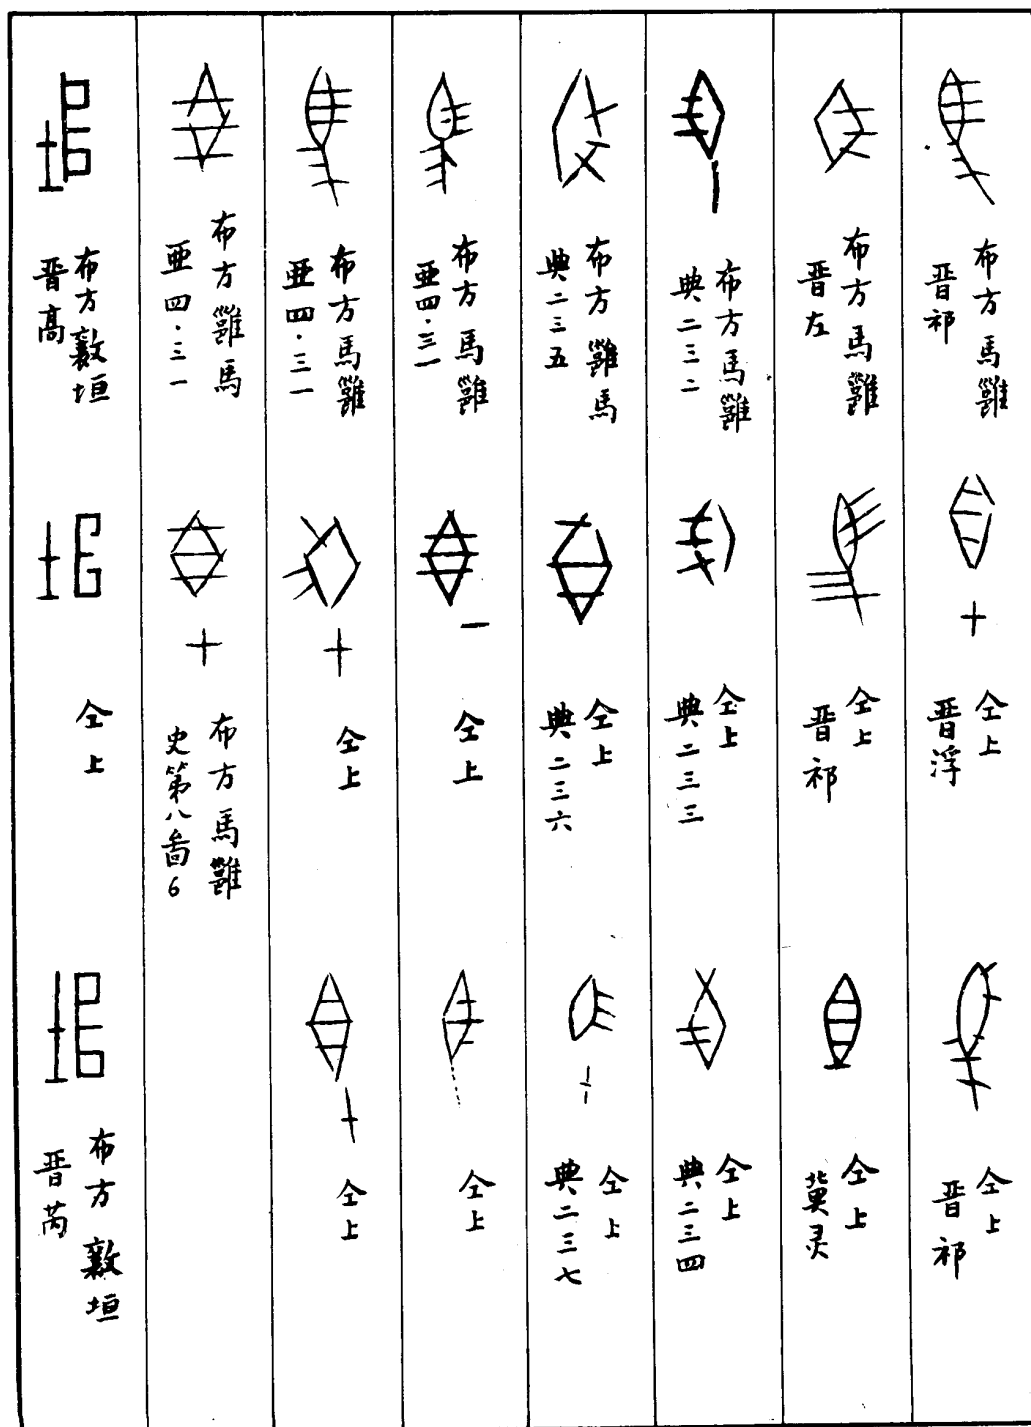 布方馬雝
晋祁
仝上
晋浮
仝上
晋祁
布方馬雝
晋左
仝上
晋祁
仝上
冀灵
布方馬雝
典二三二
仝上
典二三三
仝上
典二三四
布方雝馬
典二三五
仝上
典二三六
仝上
典二三七
布方馬雝
亜四·三一
仝上
仝上
布方馬雝
亜四·三一
仝上
仝上
布方雝馬
亜四·三一
布方馬雝
史第八啚6
布方𣀉垣
晋高
仝上
布方𣀉垣
晋芮